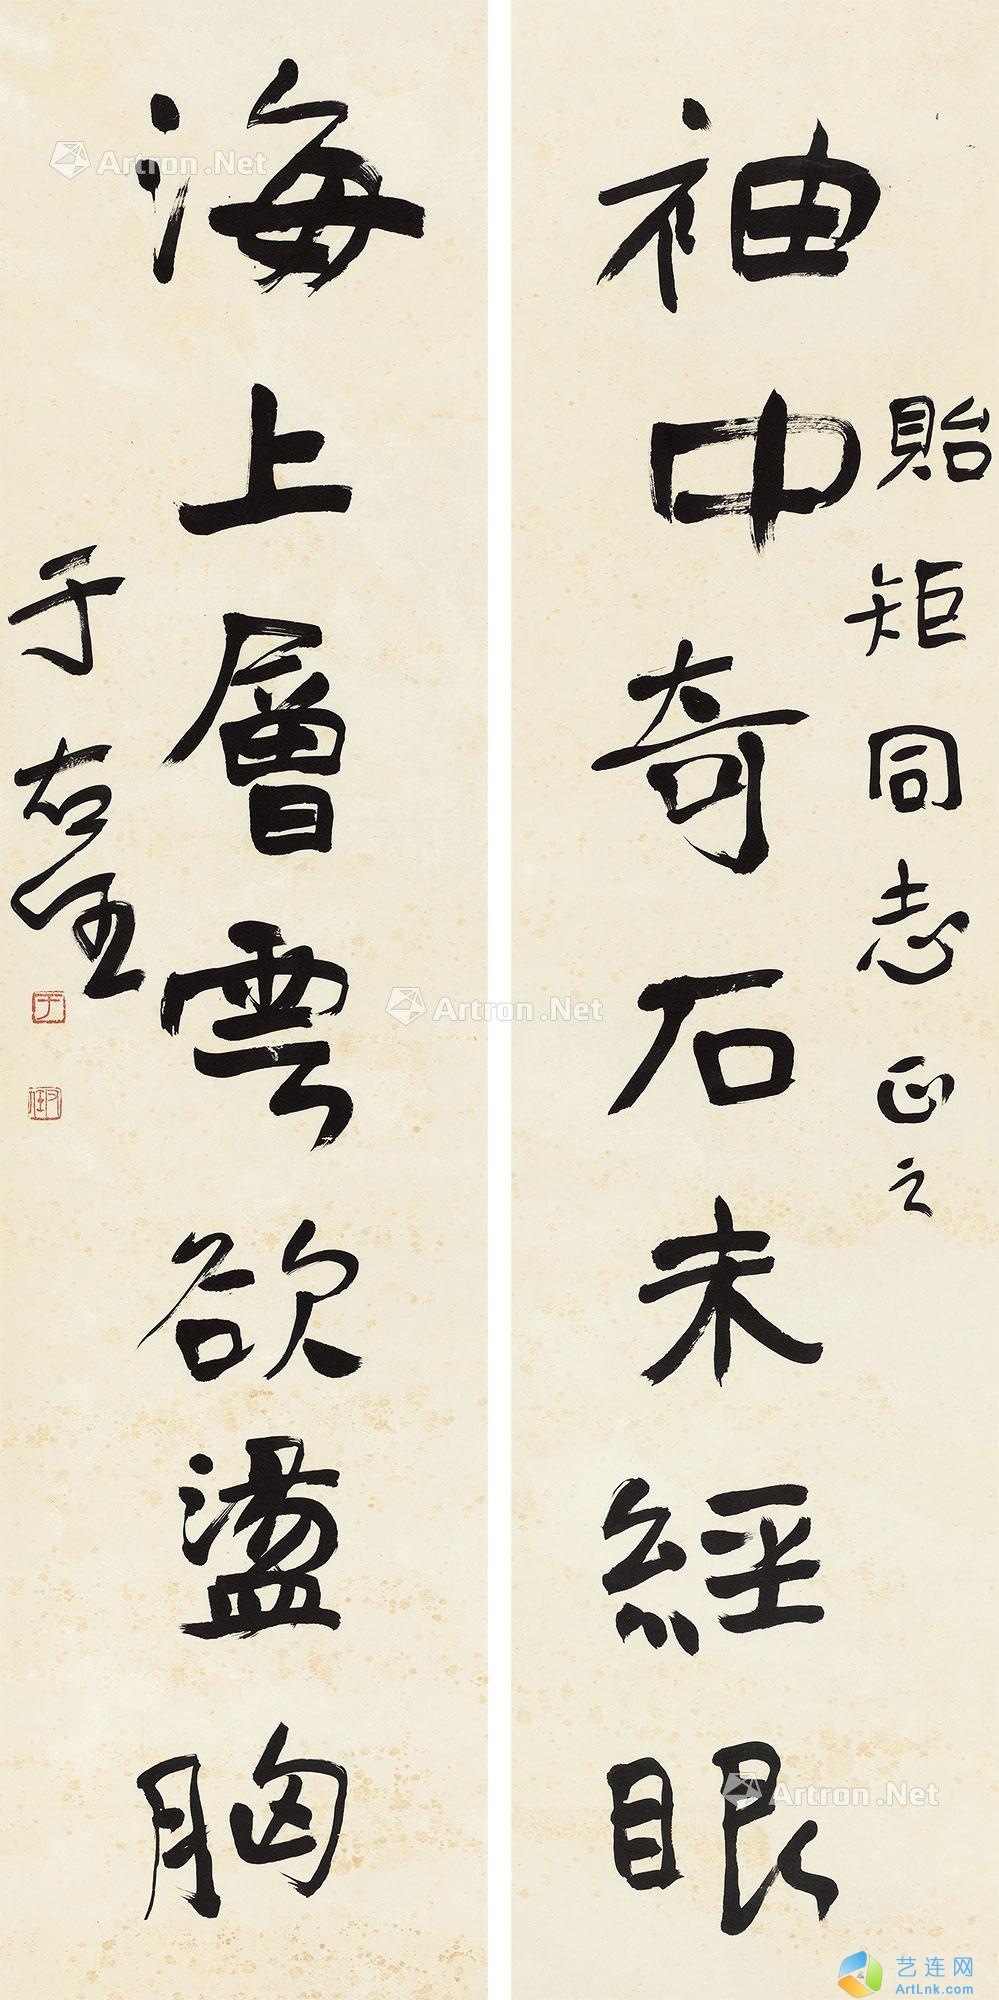 袖中奇石未經眼
貽矩同志正之
海上層雲欲盪胸
于右任
Artron.Net
Artron.Net
Artron.Net
艺连网
ArtLnk.com